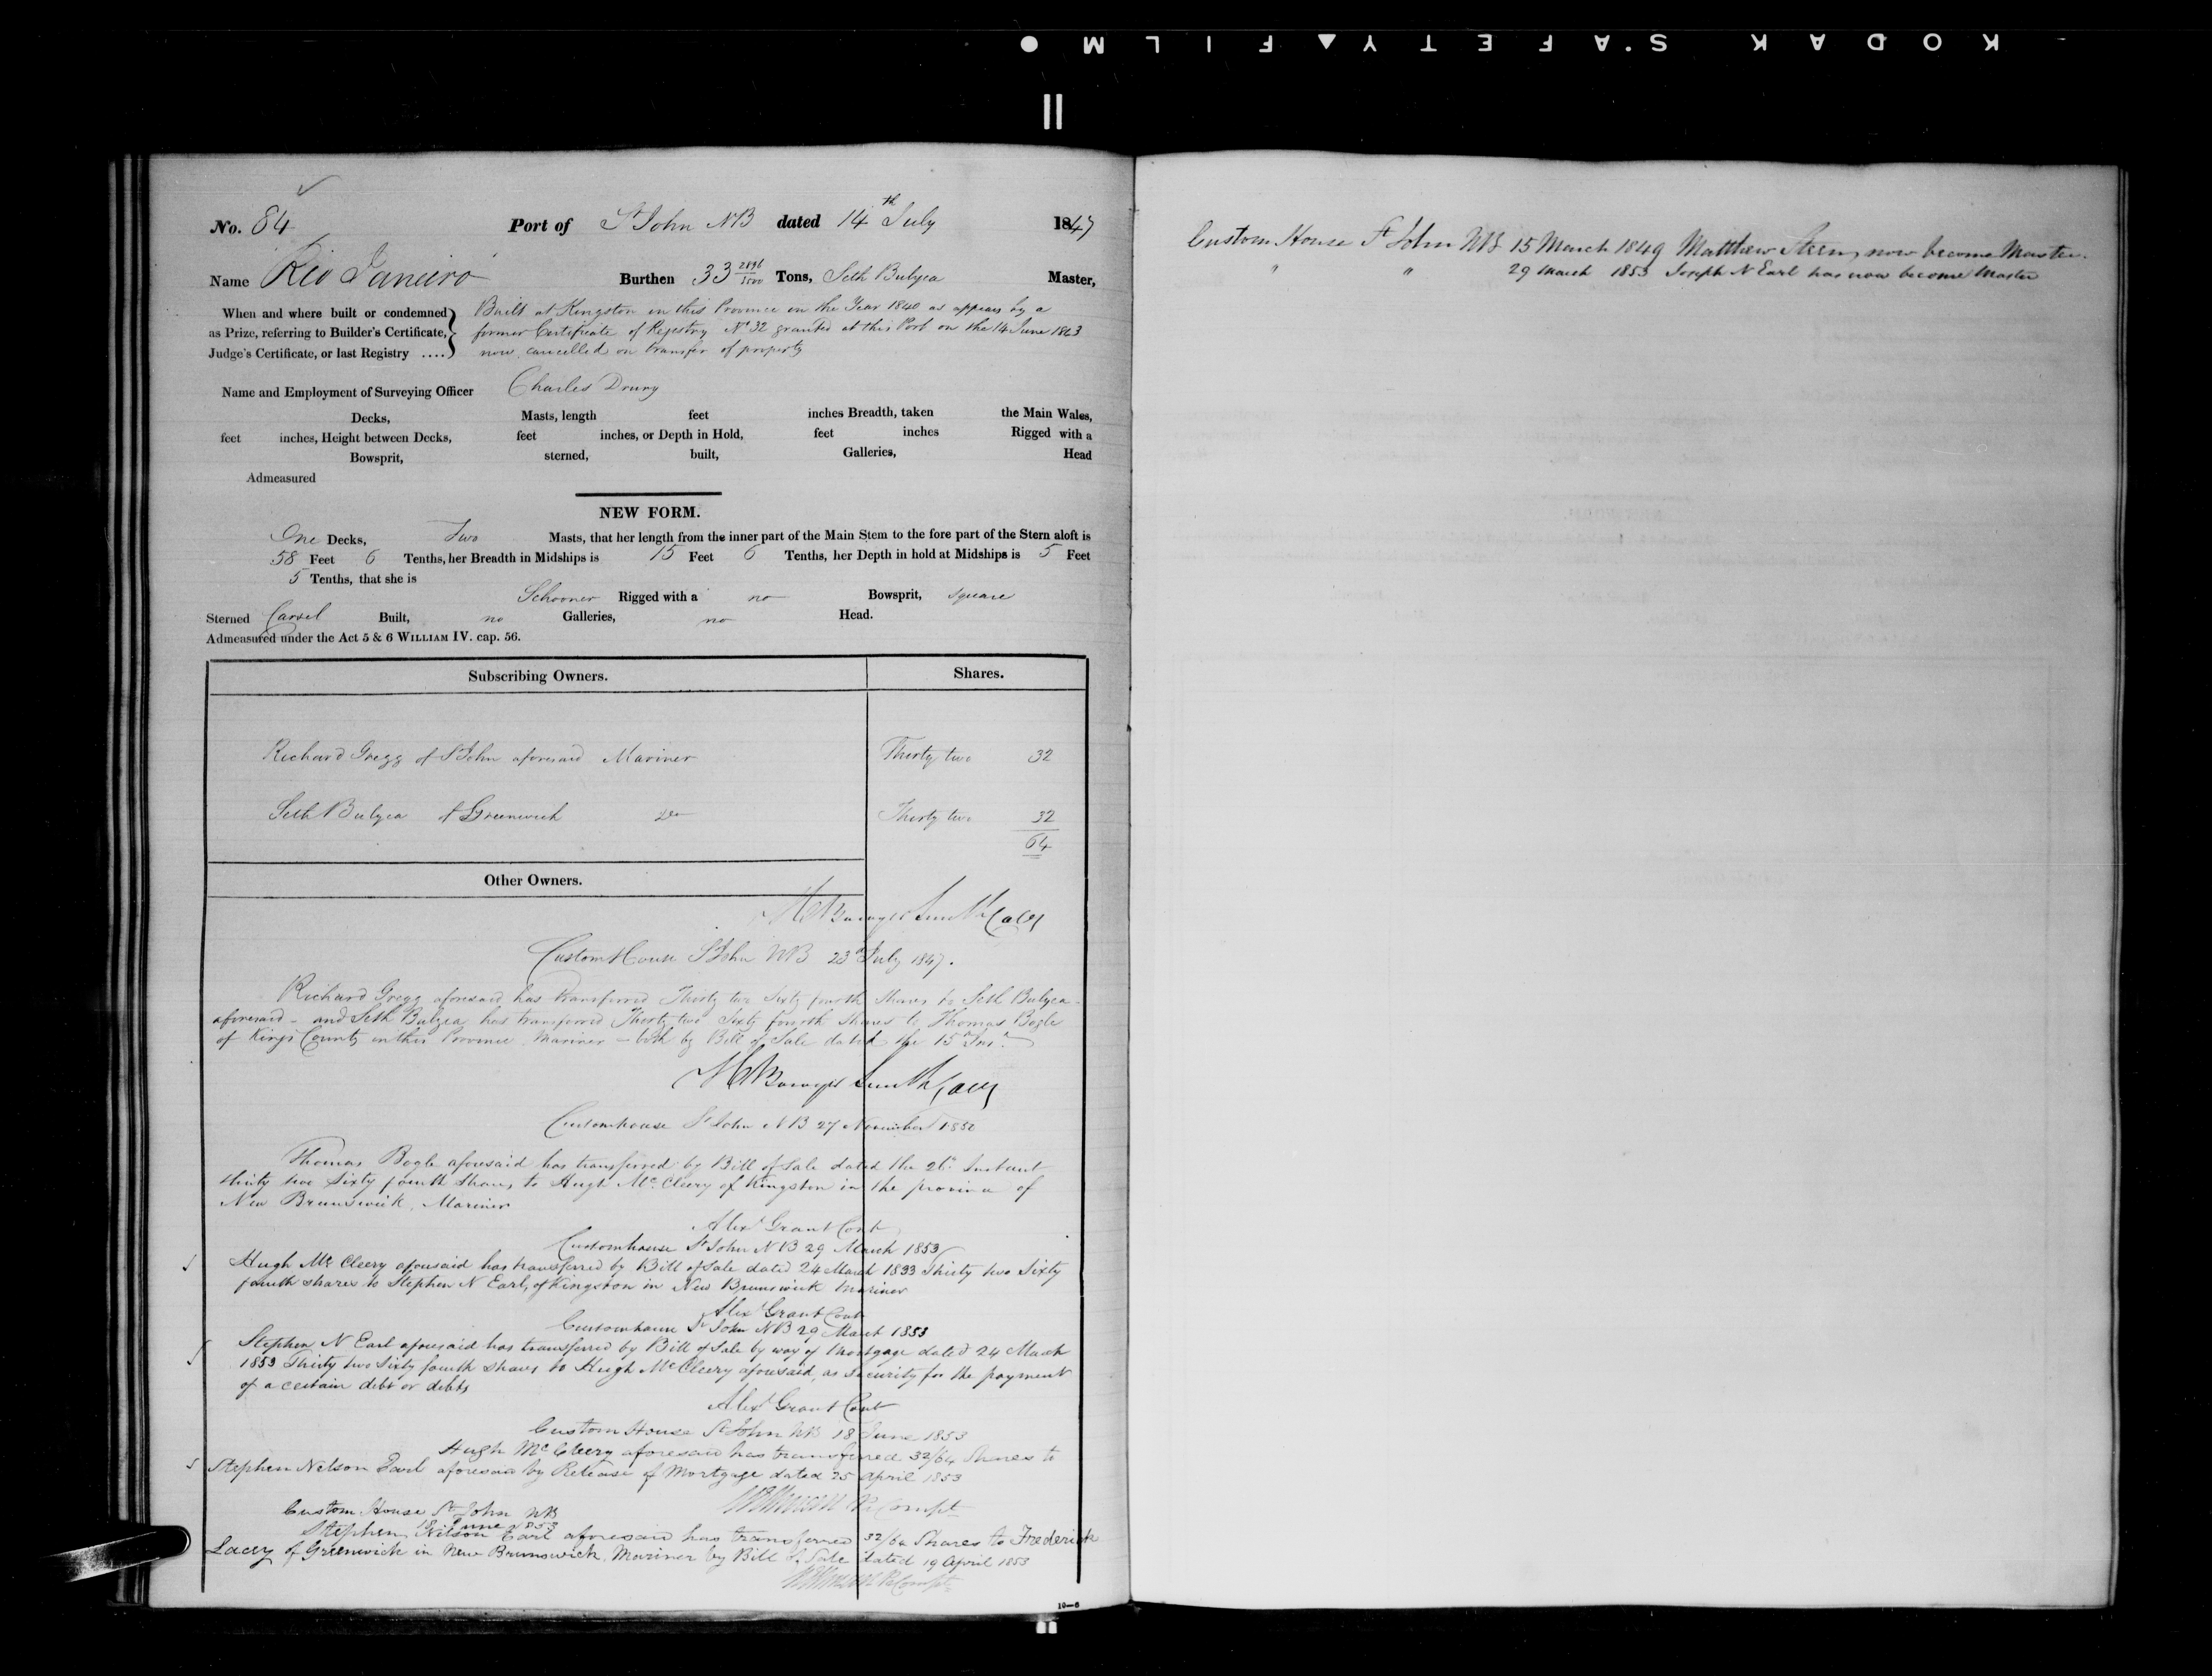 KODAK SAFETY FILM
No. 84 Port of St John NB dated 14th July 1847
Name Rio Janeiro Burthen 33 2896/3500 Tons, Seth Bulyea Master,
When and where built or condemned as Prize, referring to Builder's Certificate, Judge's Certificate, or last Registry ....
Built at Kingston in this Province in the Year 1840 as appears by a
former Certificate of Registry No 32 granted at this Port on the 14 June 1843
now cancelled on transfer of property
Name and Employment of Surveying Officer Charles Drury
Decks, Masts, length feet inches Breadth, taken the Main Wales,
feet inches, Height between Decks, feet inches, or Depth in Hold, feet inches Rigged with a
Bowsprit, sterned, built, Galleries, Head
Admeasured
NEW FORM.
One Decks, Two Masts, that her length from the inner part of the Main Stem to the fore part of the Stern aloft is
58 Feet 6 Tenths, her Breadth in Midships is 15 Feet 6 Tenths, her Depth in hold at Midships is 5 Feet
5 Tenths, that she is
Schooner Rigged with a no Bowsprit, square
Sterned Carvel Built, no Galleries, no Head.
Admeasured under the Act 5 & 6 WILLIAM IV. cap. 56.
Subscribing Owners. Shares.
Richard Gregg of St John aforesaid Mariner Thirty two 32
Seth Bulyea of Greenwich do Thirty two 32
64
Other Owners.
Custom House St John NB 23d July 1847.
Richard Gregg aforesaid has transferred Thirty two Sixty fourth Shares to Seth Bulyea
aforesaid - and Seth Bulyea has transferred Thirty two Sixty fourth shares to Thomas Bogle
of Kings County in this Province Mariner - both by Bill of Sale dated the 15th Inst
Customhouse St John NB 27 November
Thomas Bogle aforesaid has transferred by Bill of Sale dated the Instant
thirty two Sixty fourth Shares to Hugh Mc Cleery of Kingston in the province of
New Brunswick, Mariner
Alexr Grant Cont
Customhouse St John NB 29 March 1853
Hugh Mc Cleery aforesaid has transferred by Bill of Sale dated 24 March 1853 Thirty two Sixty
fourth shares to Stephen N Earl, of Kingston in New Brunswick Mariner
Alexr Grant Cont
Customhouse St John NB 29 March 1853
Stephen N Earl aforesaid has transferred by Bill of Sale by way of Mortgage dated 24 March
1853 Thirty two Sixty fourth shares to Hugh McCleery aforesaid, as security for the payment
of a certain debt or debts
Alexr Grant Cont
Custom House St John NB 18 June 1853
Hugh Mc Cleery aforesaid has transferred 32/64 Shares to
Stephen Nelson Earl aforesaid by Release of Mortgage dated 25 April 1853
Custom House St John NB
18 June 1853
Stephen Nelson Earl aforesaid has transferred 32/64 Shares to Frederick
Lacey of Greenwich in New Brunswick, Mariner by Bill of Sale dated 19 April 1853
10—6
Custom House St John NB 15 March 1849 Matthew Steen, now become Master.
" " 29 March 1853 Joseph N Earl has now become Master